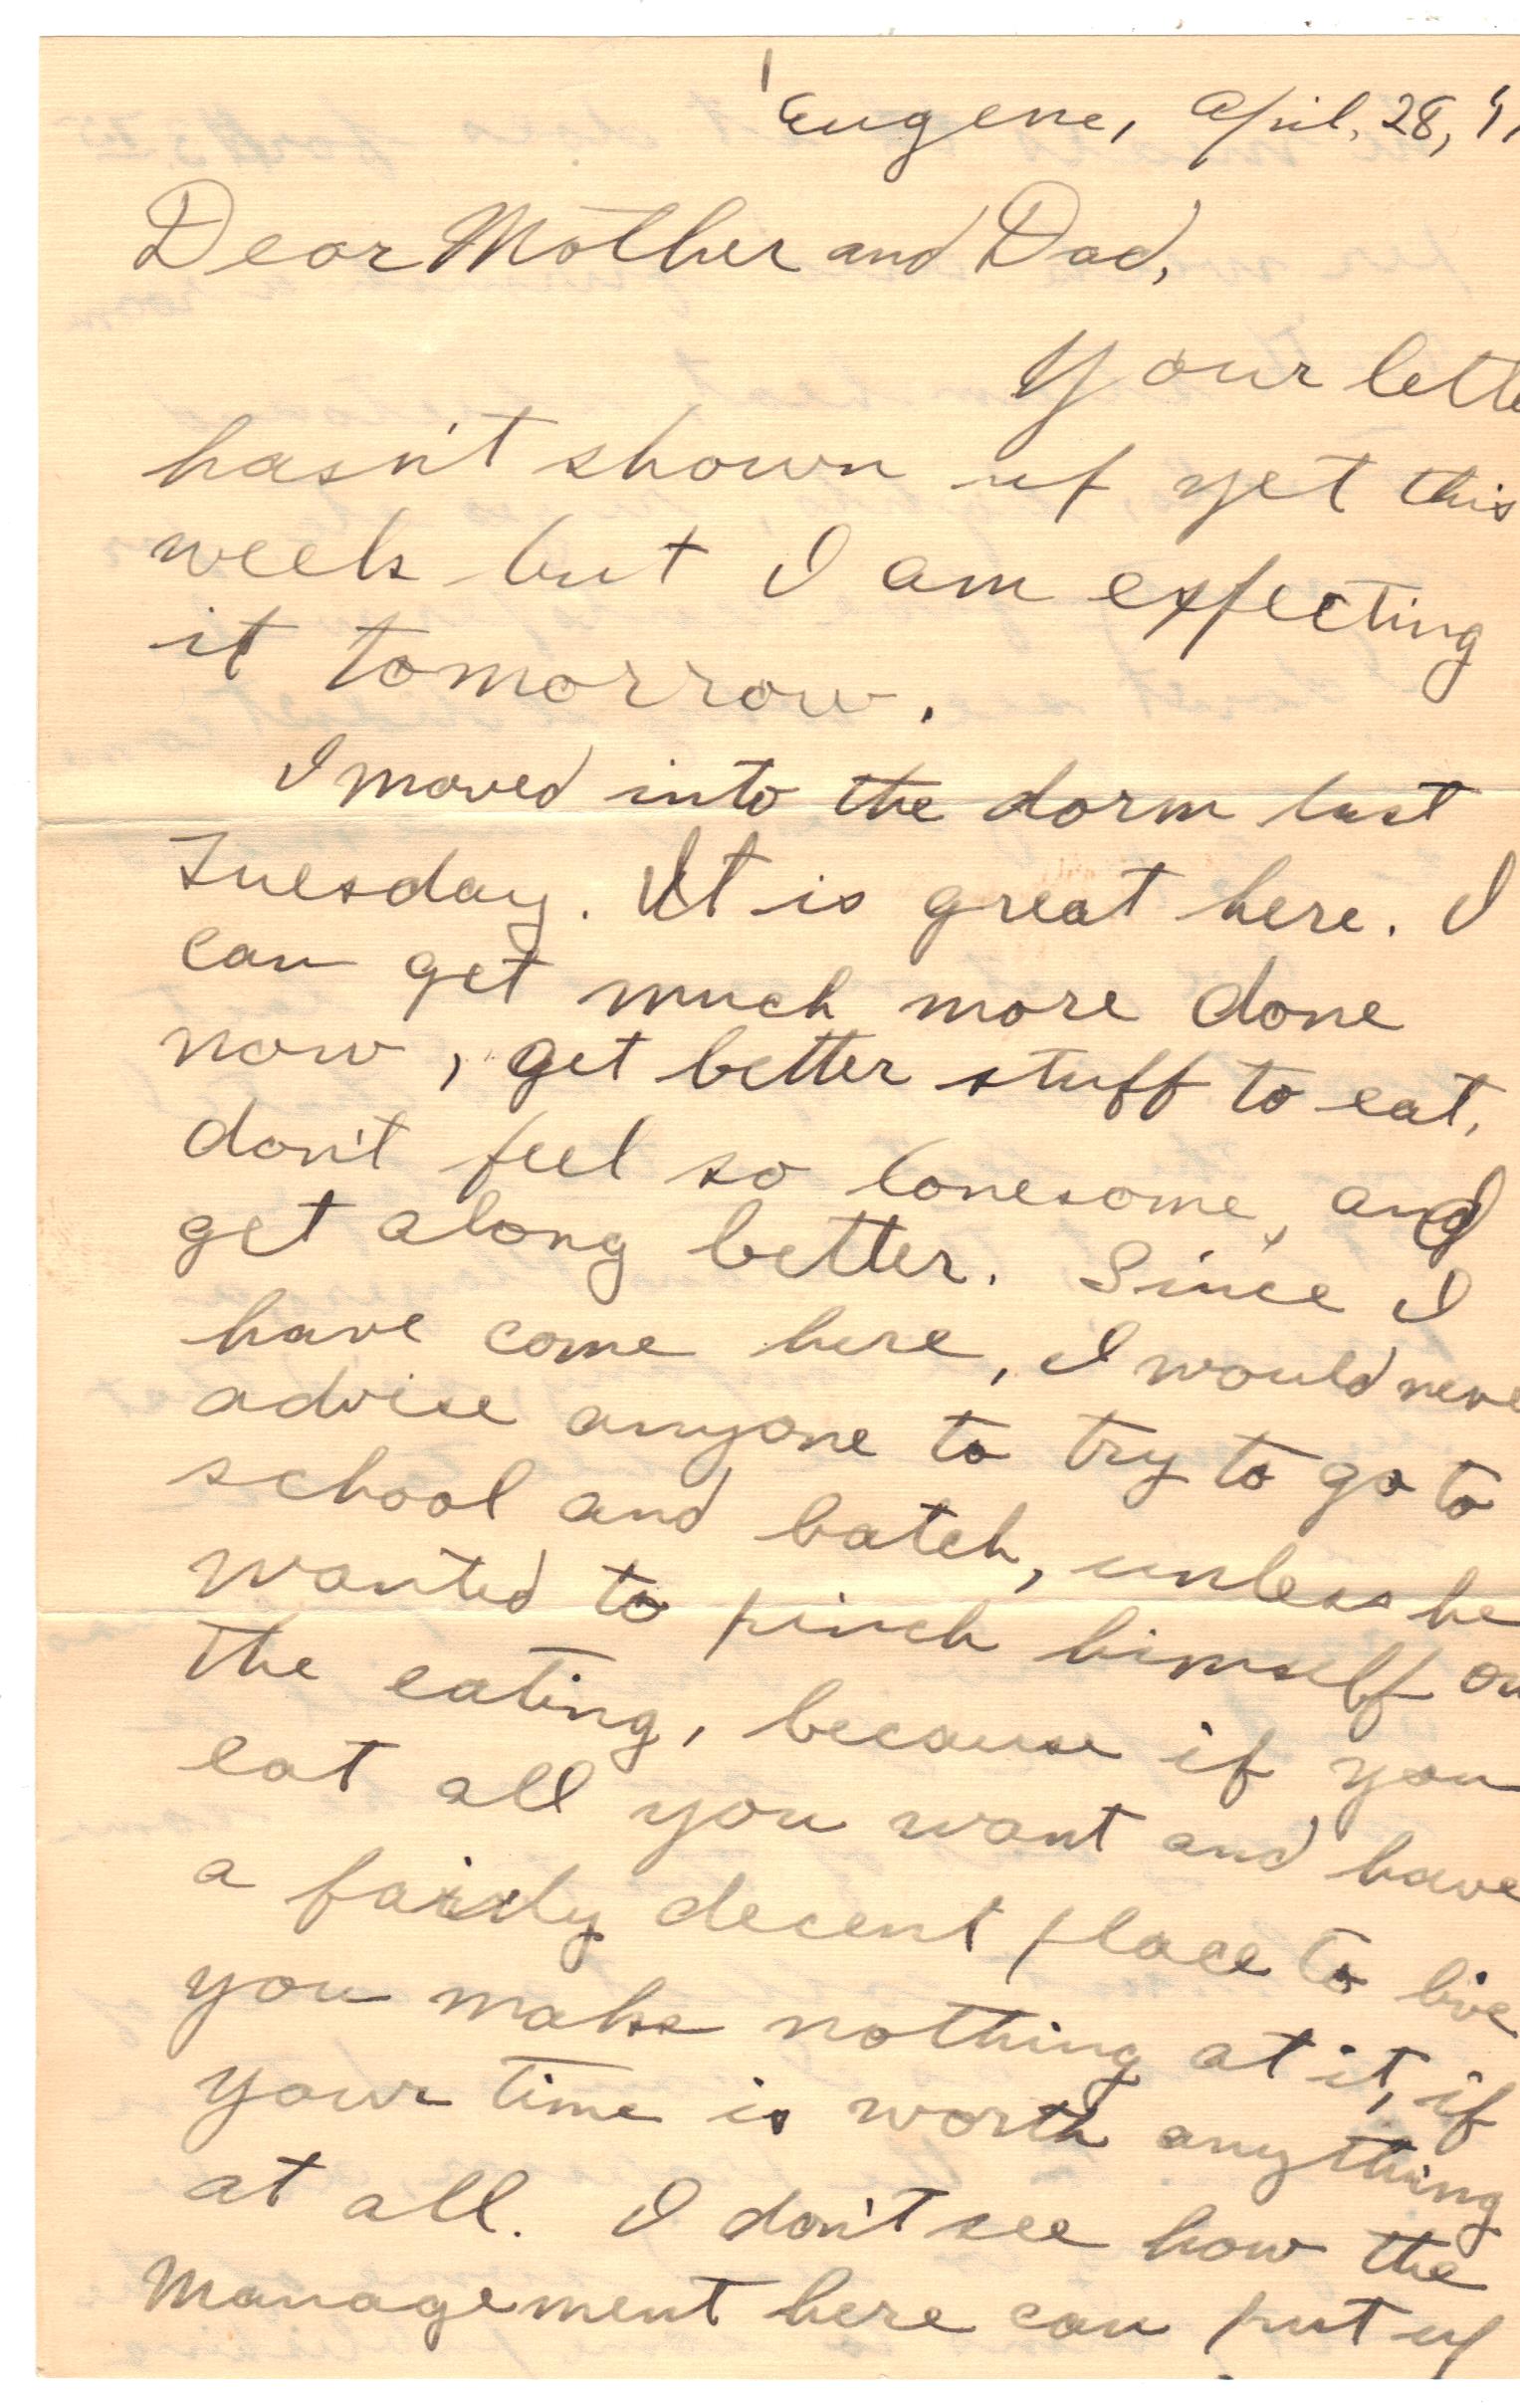 Eugene, April, 28, '1
Dear Mother and Dad,
Your lette
hasn't shown up yet this
week but I am expecting
it tomorrow.
I moved into the dorm last
Tuesday. It is great here. I
can get much more done
now, get better stuff to eat,
don't feel so lonesome, and
get along better. Since I
have come here, I would neve
advise anyone to try to go to
school and batch, unless he
wanted to pinch himself on
the eating, because if you
eat all you want and have
a fairly decent place to live
you make nothing at it, if
your time is worth anything
at all. I don't see how the
management here can put up